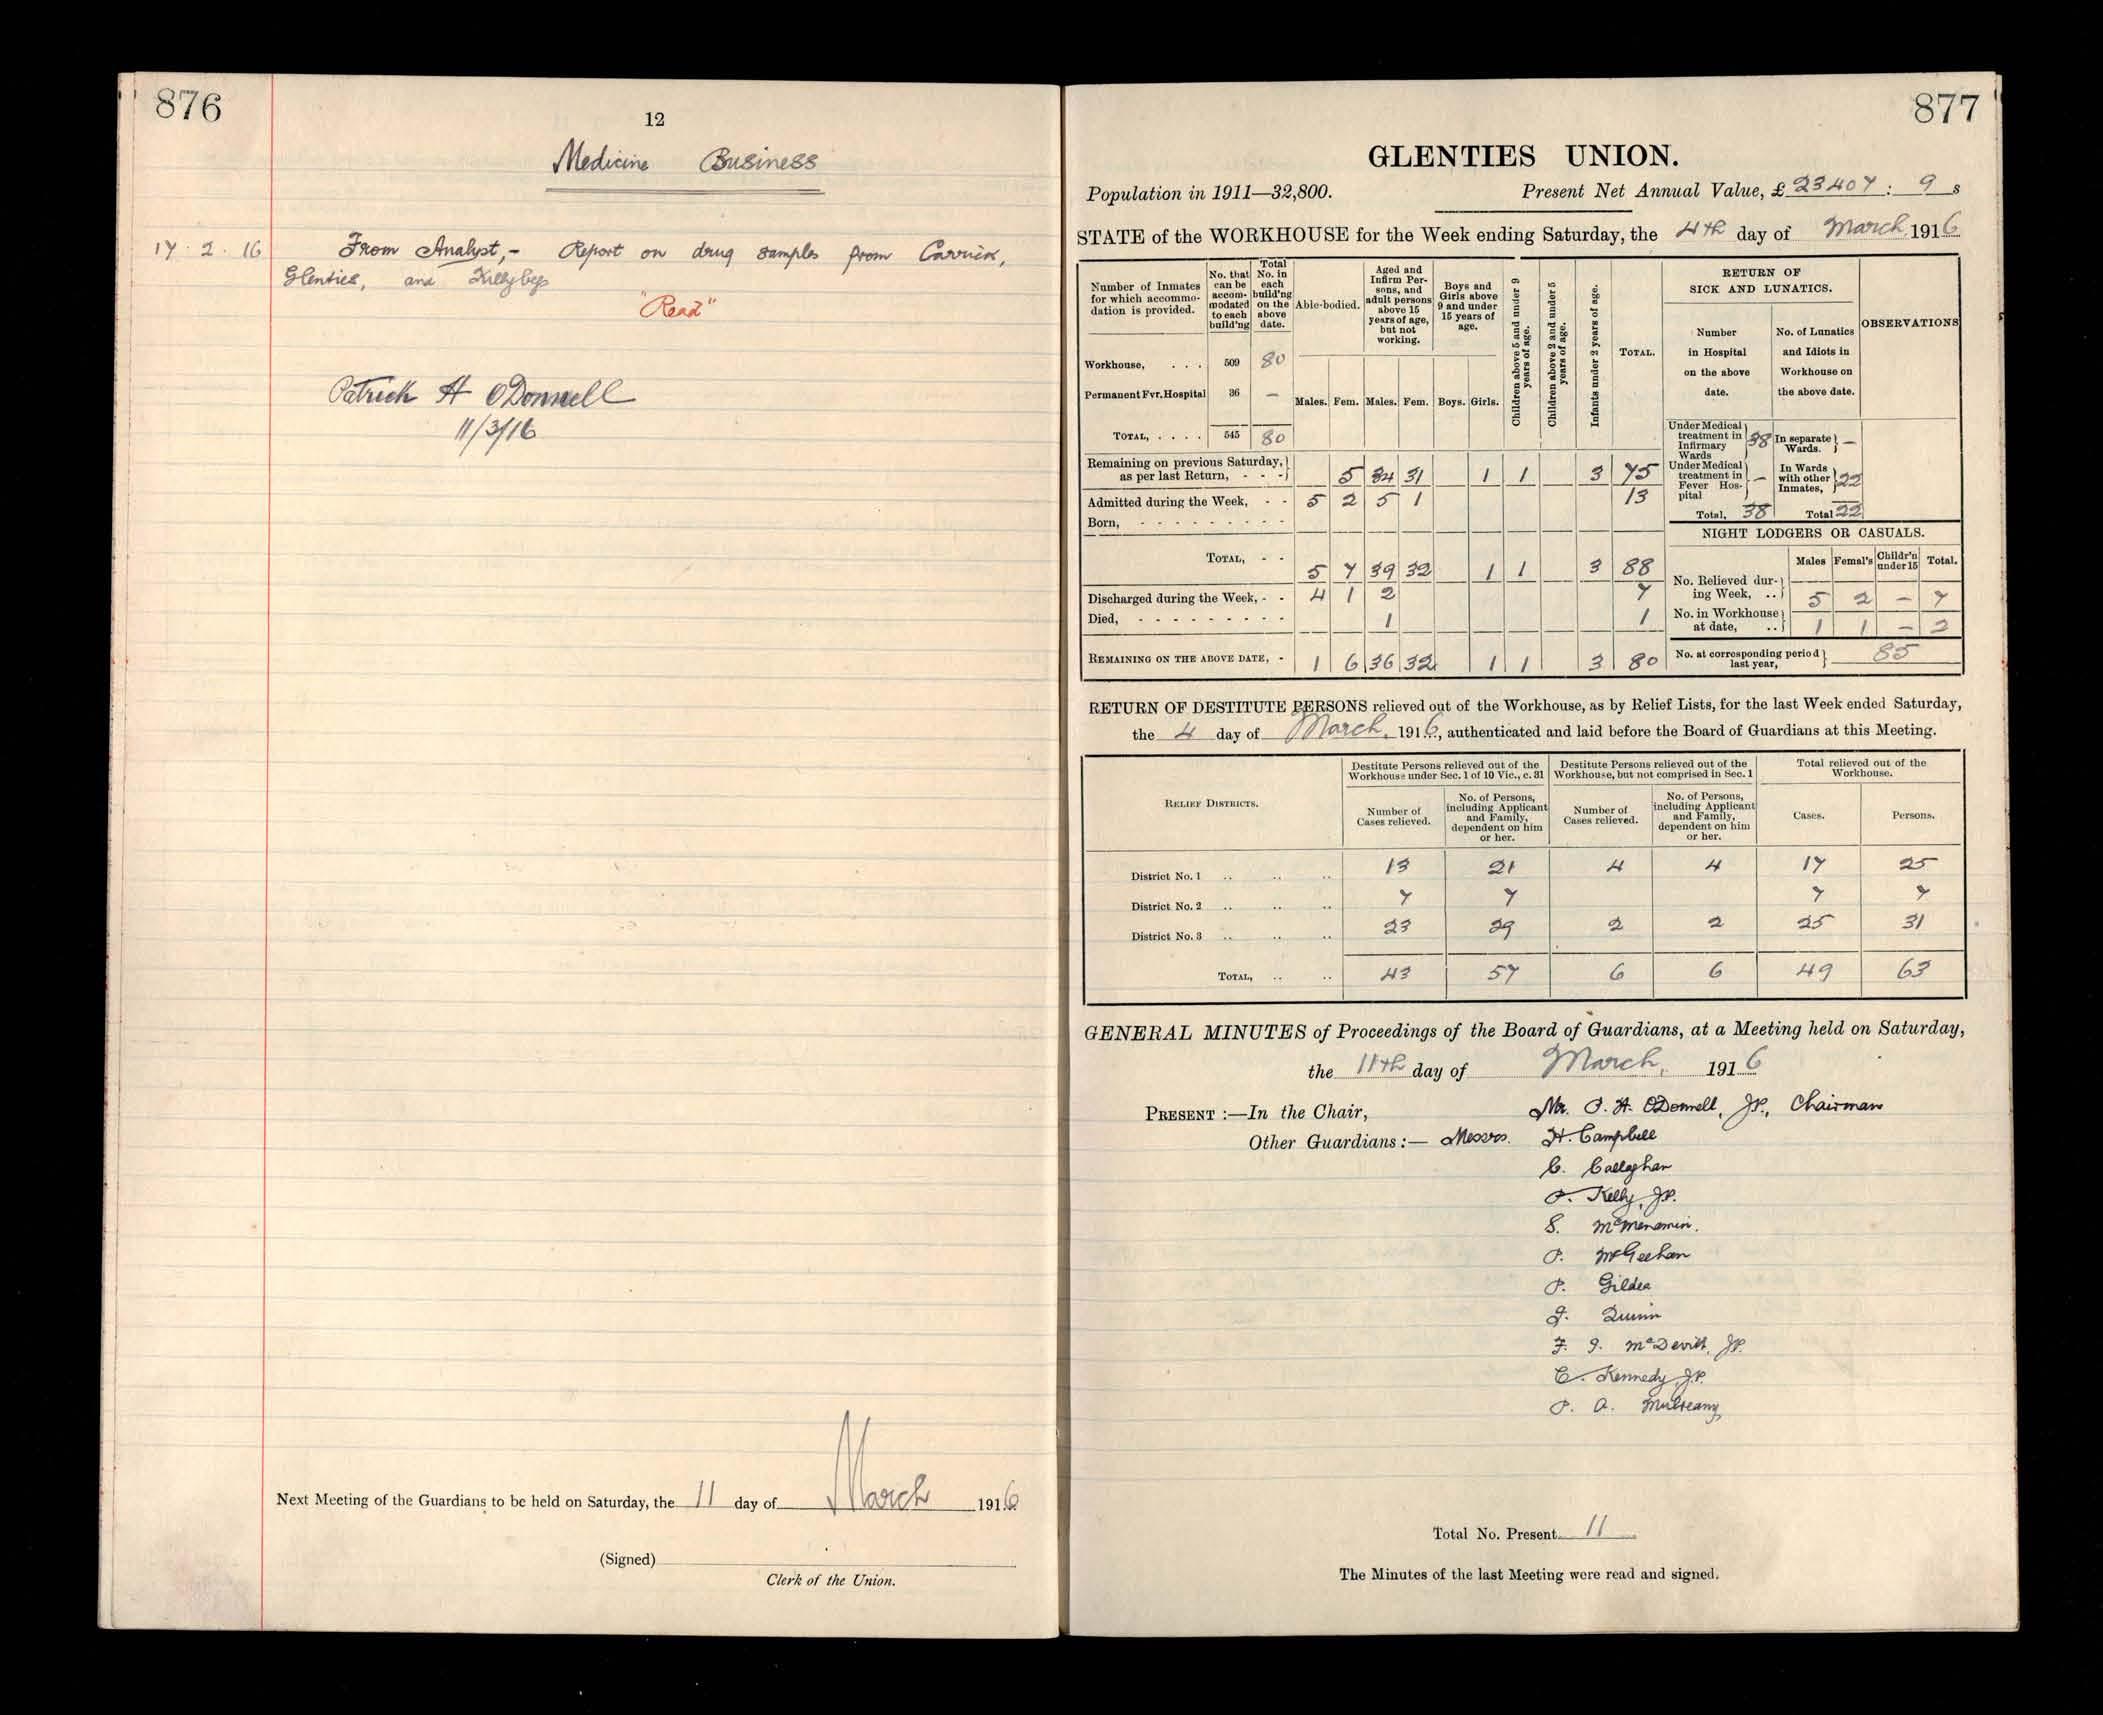 876
12
Medicine Business
17 . 2 . 16 From Analyst,- Report on drug samples from Carrick,
Glenties, and Killybegs
"Read"
Patrick H O'Donnell
11/3/16
Next Meeting of the Guardians to be held on Saturday, the 11 day of March 1916
(Signed)
Clerk of the Union.
877
GLENTIES UNION.
Population in 1911—32,800. Present Net Annual Value, £23407 : 9 s
STATE of the WORKHOUSE for the Week ending Saturday, the 4th day of March 1916
Number of Inmates for which accommodation is provided.
No. that can be accommodated to each build'ng
Total No. in each build'ng on the above date.
Able-bodied.
Aged and Infirm Persons, and adult persons above 15 years of age, but not working.
Boys and Girls above 9 and under 15 years of age.
Children above 5 and under 9 years of age.
Children above 2 and under 5 years of age.
Infants under 2 years of age.
TOTAL.
RETURN OF SICK AND LUNATICS.
Number in Hospital on the above date.
No. of Lunatics and Idiots in Workhouse on the above date.
OBSERVATIONS
Workhouse, . . . 509 80
Permanent Fvr. Hospital 36 —
TOTAL, . . . . 545 80
Males. Fem. Males. Fem. Boys. Girls.
Remaining on previous Saturday, as per last Return, - - - 5 34 31 1 1 3 75
Admitted during the Week, - - 5 2 5 1 13
Born, - - - - - - - - -
TOTAL, - - 5 7 39 32 1 1 3 88
Discharged during the Week, - - 4 1 2 7
Died, - - - - - - - - - 1 1
REMAINING ON THE ABOVE DATE, - 1 6 36 32 1 1 3 80
Under Medical treatment in Infirmary Wards 38
In separate Wards. —
Under Medical treatment in Fever Hospital —
In Wards with other Inmates, 22
Total, 38 Total 22
NIGHT LODGERS OR CASUALS.
Males Femal's Childr'n under 15 Total.
No. Relieved during Week, .. 5 2 — 7
No. in Workhouse at date, .. 1 1 — 2
No. at corresponding period last year, 85
RETURN OF DESTITUTE PERSONS relieved out of the Workhouse, as by Relief Lists, for the last Week ended Saturday,
the 4 day of March, 1916, authenticated and laid before the Board of Guardians at this Meeting.
RELIEF DISTRICTS.
Destitute Persons relieved out of the Workhouse under Sec. 1 of 10 Vic., c. 31
Destitute Persons relieved out of the Workhouse, but not comprised in Sec. 1
Total relieved out of the Workhouse.
Number of Cases relieved.
No. of Persons, including Applicant and Family, dependent on him or her.
Number of Cases relieved.
No. of Persons, including Applicant and Family, dependent on him or her.
Cases.
Persons.
District No. 1 .. .. .. 13 21 4 4 17 25
District No. 2 .. .. .. 7 7 7 7
District No. 3 .. .. .. 23 29 2 2 25 31
TOTAL, .. .. 43 57 6 6 49 63
GENERAL MINUTES of Proceedings of the Board of Guardians, at a Meeting held on Saturday,
the 11th day of March, 1916
PRESENT :—In the Chair, Mr. P. H. O'Donnell, J.P., Chairman
Other Guardians :— Messrs. H. Campbell
C. Callaghan
P. Kelly, J.P.
S. McMenamin.
P. McGeehan
P. Gildea
J. Quinn
F. J. McDevitt, J.P.
C. Kennedy, J.P.
P. A. Mulreany
Total No. Present 11
The Minutes of the last Meeting were read and signed.